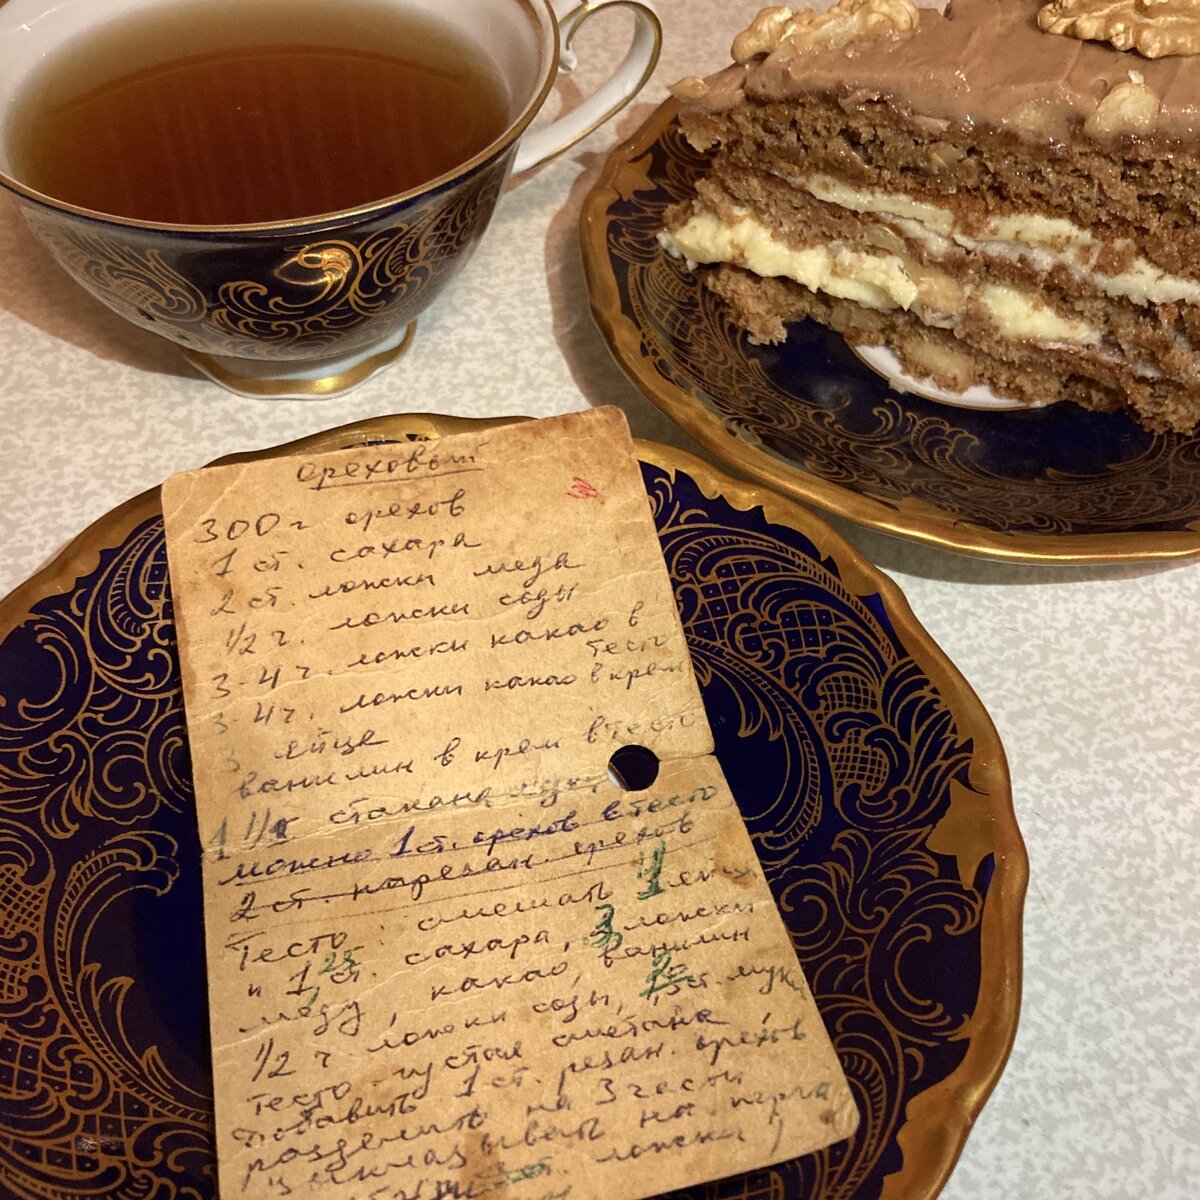 ореховый
300 г орехов
1 ст. сахара
2 ст. ложки меда
1/2 ч. ложки соды
3-4 ч. ложки какао в тесто
3-4 ч. ложки какао в крем
3 яйца
ванилин в крем в тесто
1 1/2 стакана
можно 1 ст. орехов в тесто
2 ст. нарезан. орехов
Тесто: смешать
и 1,25 ст. сахара, 3 ложки
меду, какао, ванилин
1/2 ч. ложки соды, ст. муки
тесто - густая сметана,
добавить 1 ст. резан. орехов
разделить на 3 части
на
ложки